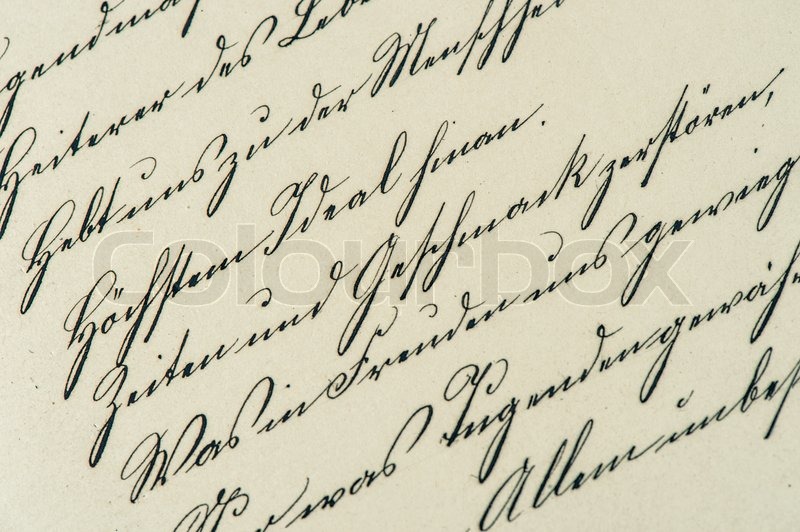 gendma
Heiterer des Lebe
Hebt uns zu der Menschhei
Höchstem Ideal hinan.
Zeiten und Geschmack zerstören,
Was in Freuden uns gewieg
was Tugenden gewäh
Allem unbe
Colourbox